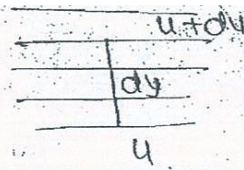 u+du
dy
u